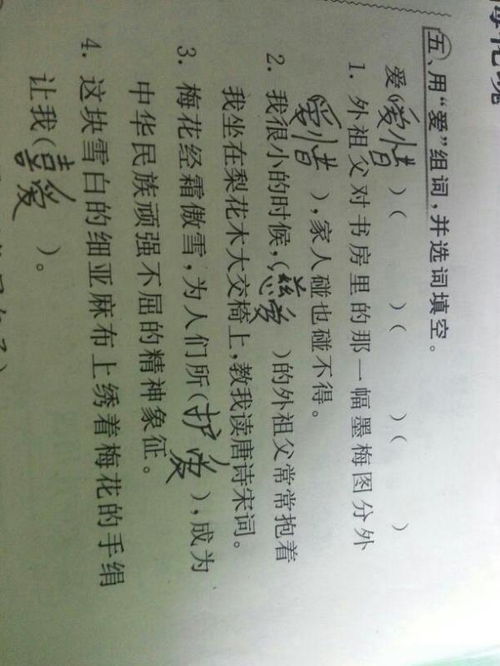 五、用“爱”组词,并选词填空。
爱(爱惜)( )( )( )
1. 外祖父对书房里的那一幅墨梅图分外
(爱惜),家人碰也碰不得。
2. 我很小的时候,(慈爱)的外祖父常常抱着
我坐在梨花木大交椅上,教我读唐诗宋词。
3. 梅花经霜傲雪,为人们所(护爱),成为
中华民族顽强不屈的精神象征。
4. 这块雪白的细亚麻布上绣着梅花的手绢
让我(喜爱)。